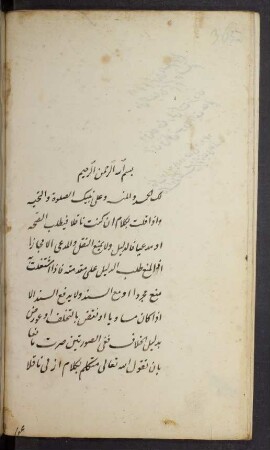 بسم الله الرحمن الرحيم
لك الحمد والمنة وعلى نبيك الصلوة والتحية
واذا قلت بكلام ان كنت ناقلا فيطلب الصحة
او مدعيا فالدليل ولا يمنع النقل والمدعى الا مجازا
اذ المنع طلب الدليل على مقدمته فاذا اشتغلت به
منع مجردا او مع السند ولا يدفع السند الا
اذا كان مساويا او نقض بالتخلف او عورض
بدليل الخلاف ففي الصورتين صرت مانعا
بان نقول الله تعالى متكلم بكلام ازلي ناقلا